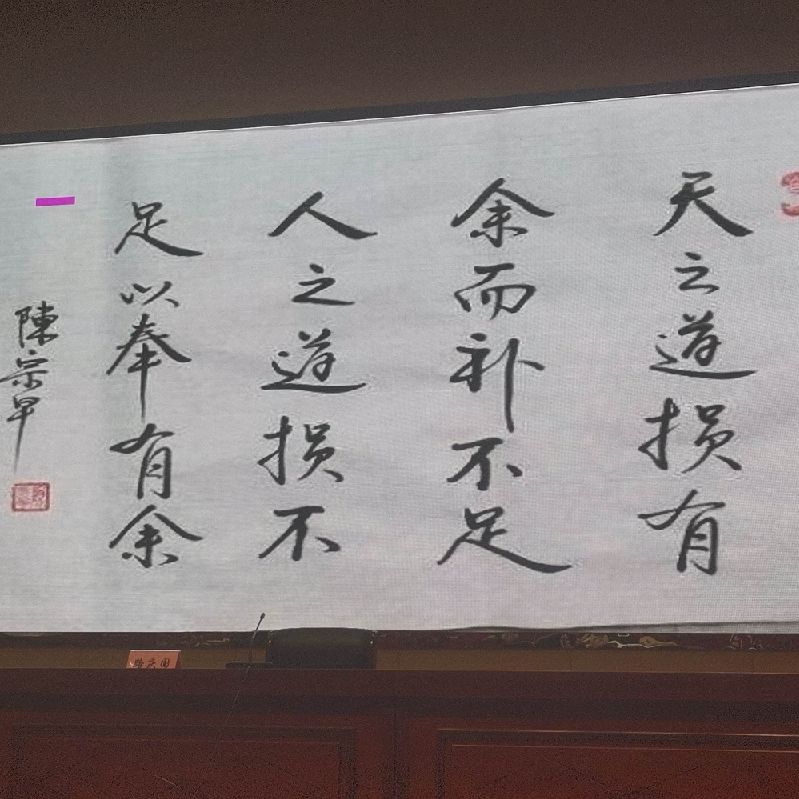 天之道损有
余而补不足
人之道损不
足以奉有余
陳宗早